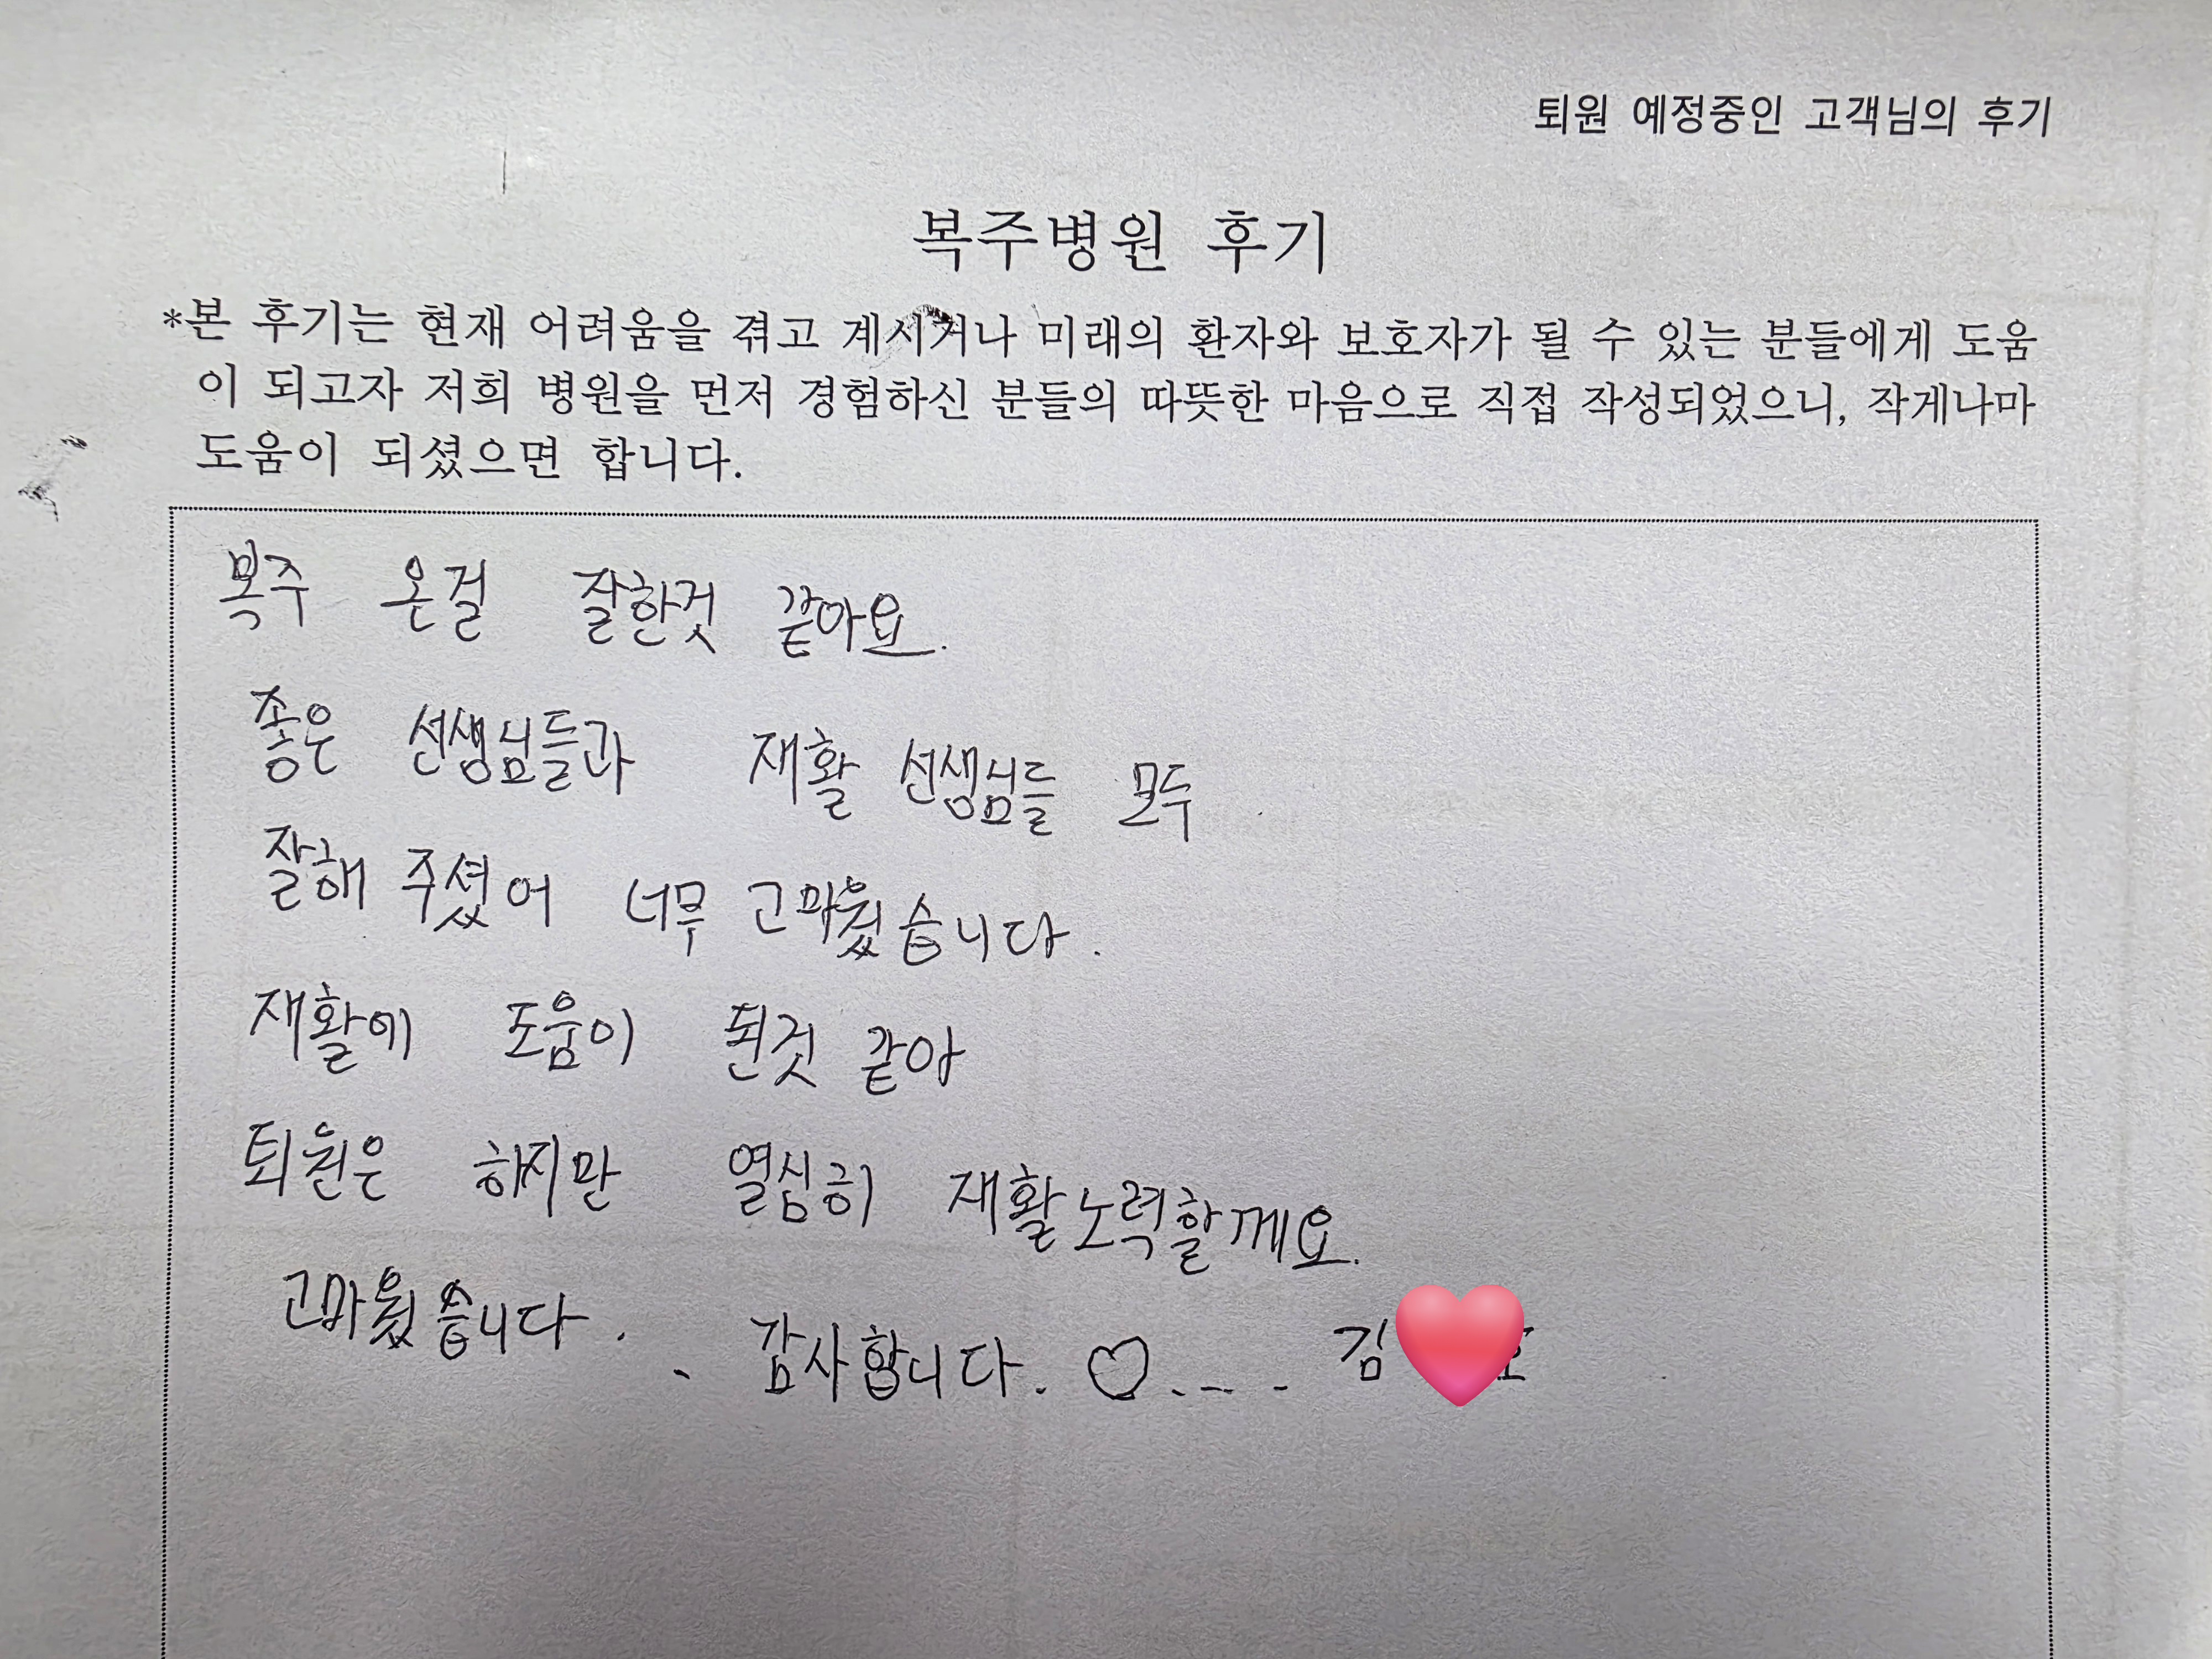 퇴원 예정중인 고객님의 후기
복주병원 후기
*본 후기는 현재 어려움을 겪고 계시거나 미래의 환자와 보호자가 될 수 있는 분들에게 도움
이 되고자 저희 병원을 먼저 경험하신 분들의 따뜻한 마음으로 직접 작성되었으니, 작게나마
도움이 되셨으면 합니다.
복주 온걸 잘한것 같아요.
좋은 선생님들과 재활 선생님들 모두
잘해 주셨어 너무 고마웠습니다.
재활에 도움이 된것 같아
퇴원은 하지만 열심히 재활노력할께요.
고마웠습니다. 감사합니다. ♡.--- 김